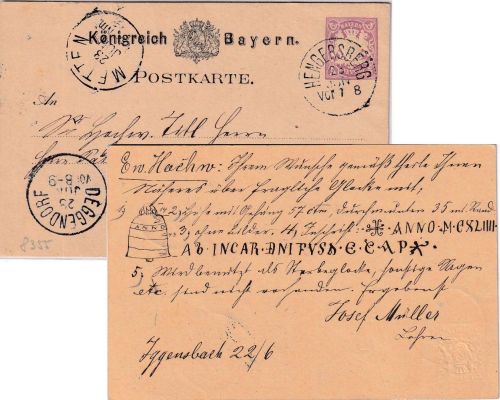 Königreich Bayern.
POSTKARTE.
METTEN
23
HENGERSBERG
23
VOR 1 8
An
Sr. Hochw. Titl Herrn
DEGGENDORF
23
JUN
8-9
8355
Ew. Hochw: Ihrem Wunsche gemäß theile Ihnen
Näheres über fragliche Glocke mit,
1, 2, Höhe mit Gehäng 57 ctm, Durchmesser 35 mit Rand
3, ohne Bilder. 4, Inschrift: ANNO·M·CXLIIII·
AB INCAR·DNI TVSN·C·C·AP
5, Wird benützt als Sterbglocke, sonstige Sagen
etc. sind nicht vorhanden. Ergebenst
Josef Müller
Lehrer
Iggensbach 22/6